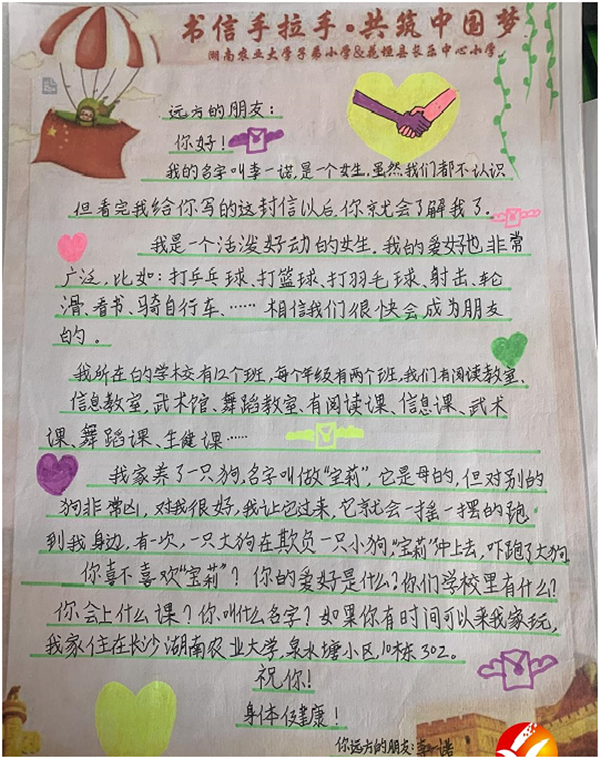 书信手拉手·共筑中国梦
湖南农业大学子弟小学&花垣县长乐中心小学
远方的朋友：
你好！
我的名字叫李一诺，是一个女生，虽然我们都不认识
但看完我给你写的这封信以后，你就会了解我了。
我是一个活泼好动的女生，我的爱好也非常
广泛，比如：打乒乓球、打篮球、打羽毛球、射击、轮
滑、看书、骑自行车、……相信我们很快会成为朋友
的。
我所在的学校有12个班，每个年级有两个班，我们有阅读教室、
信息教室，武术馆、舞蹈教室、有阅读课、信息课、武术
课、舞蹈课、生健课……
我家养了一只狗，名字叫做“宝莉”，它是母的，但对别的
狗非常凶，对我很好，我让它过来，它就会一摇一摆的跑
到我身边，有一次，一只大狗在欺负一只小狗，“宝莉”冲上去，吓跑了大狗
你喜不喜欢“宝莉”？你的爱好是什么？你们学校里有什么？
你会上什么课？你叫什么名字？如果你有时间可以来我家玩，
我家住在长沙湖南农业大学，泉水塘小区，10栋302。
祝你！
身体健康！
你远方的朋友：李一诺